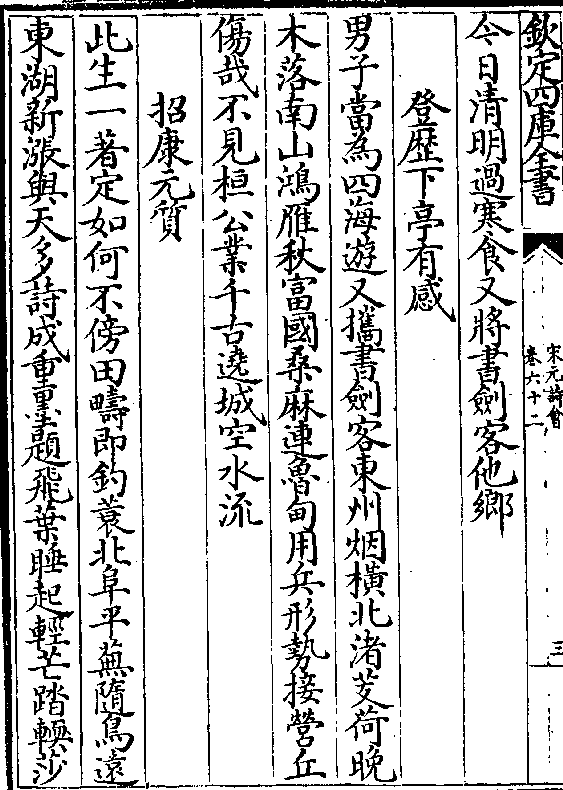 欽定四庫全書
宋元詩會
卷六十二
三
今日清明過寒食又將書劍客他鄉
登歴下亭有感
男子當為四海遊又攜書劍客東州烟橫北渚芰荷晚
木落南山鴻雁秋富國桑麻連魯甸用兵形勢接營丘
傷哉不見桓公業千古遶城空水流
招康元質
此生一著定如何不傍田疇即釣蓑北阜平蕪隨鳥遠
東湖新漲與天多詩成重墨題飛葉睡起輕芒踏輭沙